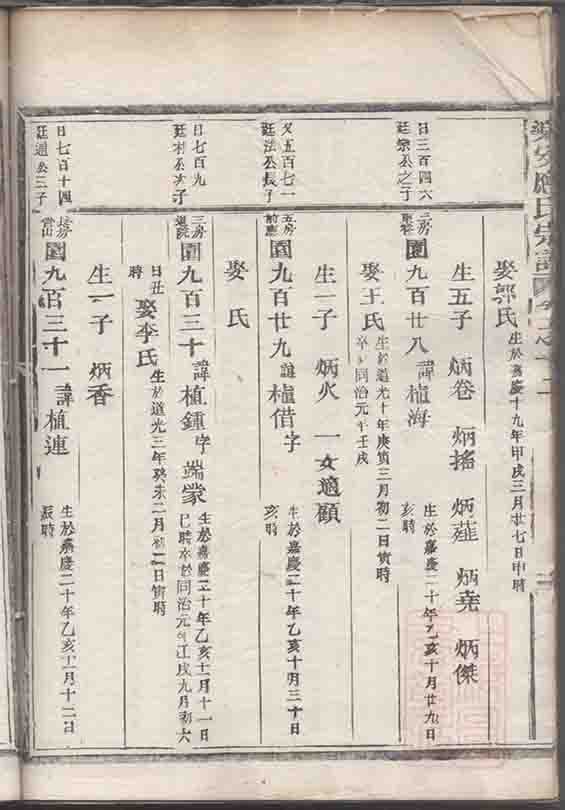 娶郭氏 生於嘉慶十九年甲戌三月廿七日申時
生五子 炳卷 炳搖 炳薤 炳堯 炳傑
日三百四六
廷樂公之子
園九百廿八 諱植海 生於嘉慶二十年乙亥十月廿九日
亥時
娶王氏 生於道光十年庚寅三月初二日寅時
卒於同治元年壬戌
生一子 炳火 一女適顧
又五百七一
廷法公長子
五房
前應
園九百廿九 諱植借 字 生於嘉慶二十年乙亥十月三十日
亥時
娶 氏
日七百九
廷材公次子
三房
園九百三十 諱植鍾 字 端蒙 生於嘉慶二十年乙亥十二月十一日
巳時卒於同治元年壬戌九月初六
日丑時
娶李氏 生於道光三年癸未二月初二日寅時
生一子 炳香
日七百十四
廷通公三子
園九百三十一 諱植連 生於嘉慶二十年乙亥十二月十二日
辰時